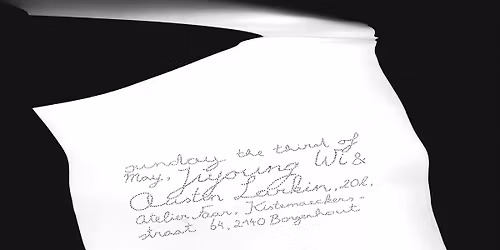 sunday the third of
May, Jiyoung Wi &
Austin Larkin, 20h,
Atelier Faar, Kistemaeckers-
straat 64, 2140 Borgerhout